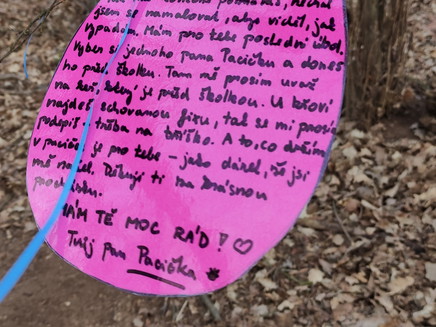 jsem se namaloval, abys viděl, jak
vypadám. Mám pro tebe poslední úkol.
Vyber si jednoho pana Pacičku a dones
ho před školku. Tam mě prosím uvaž
na keř, který je před školkou. U křoví
najdeš schovanou fixu, tak se mi prosím
podepiš třeba na bříško. A to, co držím
v pacičce, je pro tebe - jako dárek, že jsi
mě našel. Děkuji ti za krásnou
procházku.
MÁM TĚ MOC RÁD! ♡
Tvůj pan Pacička